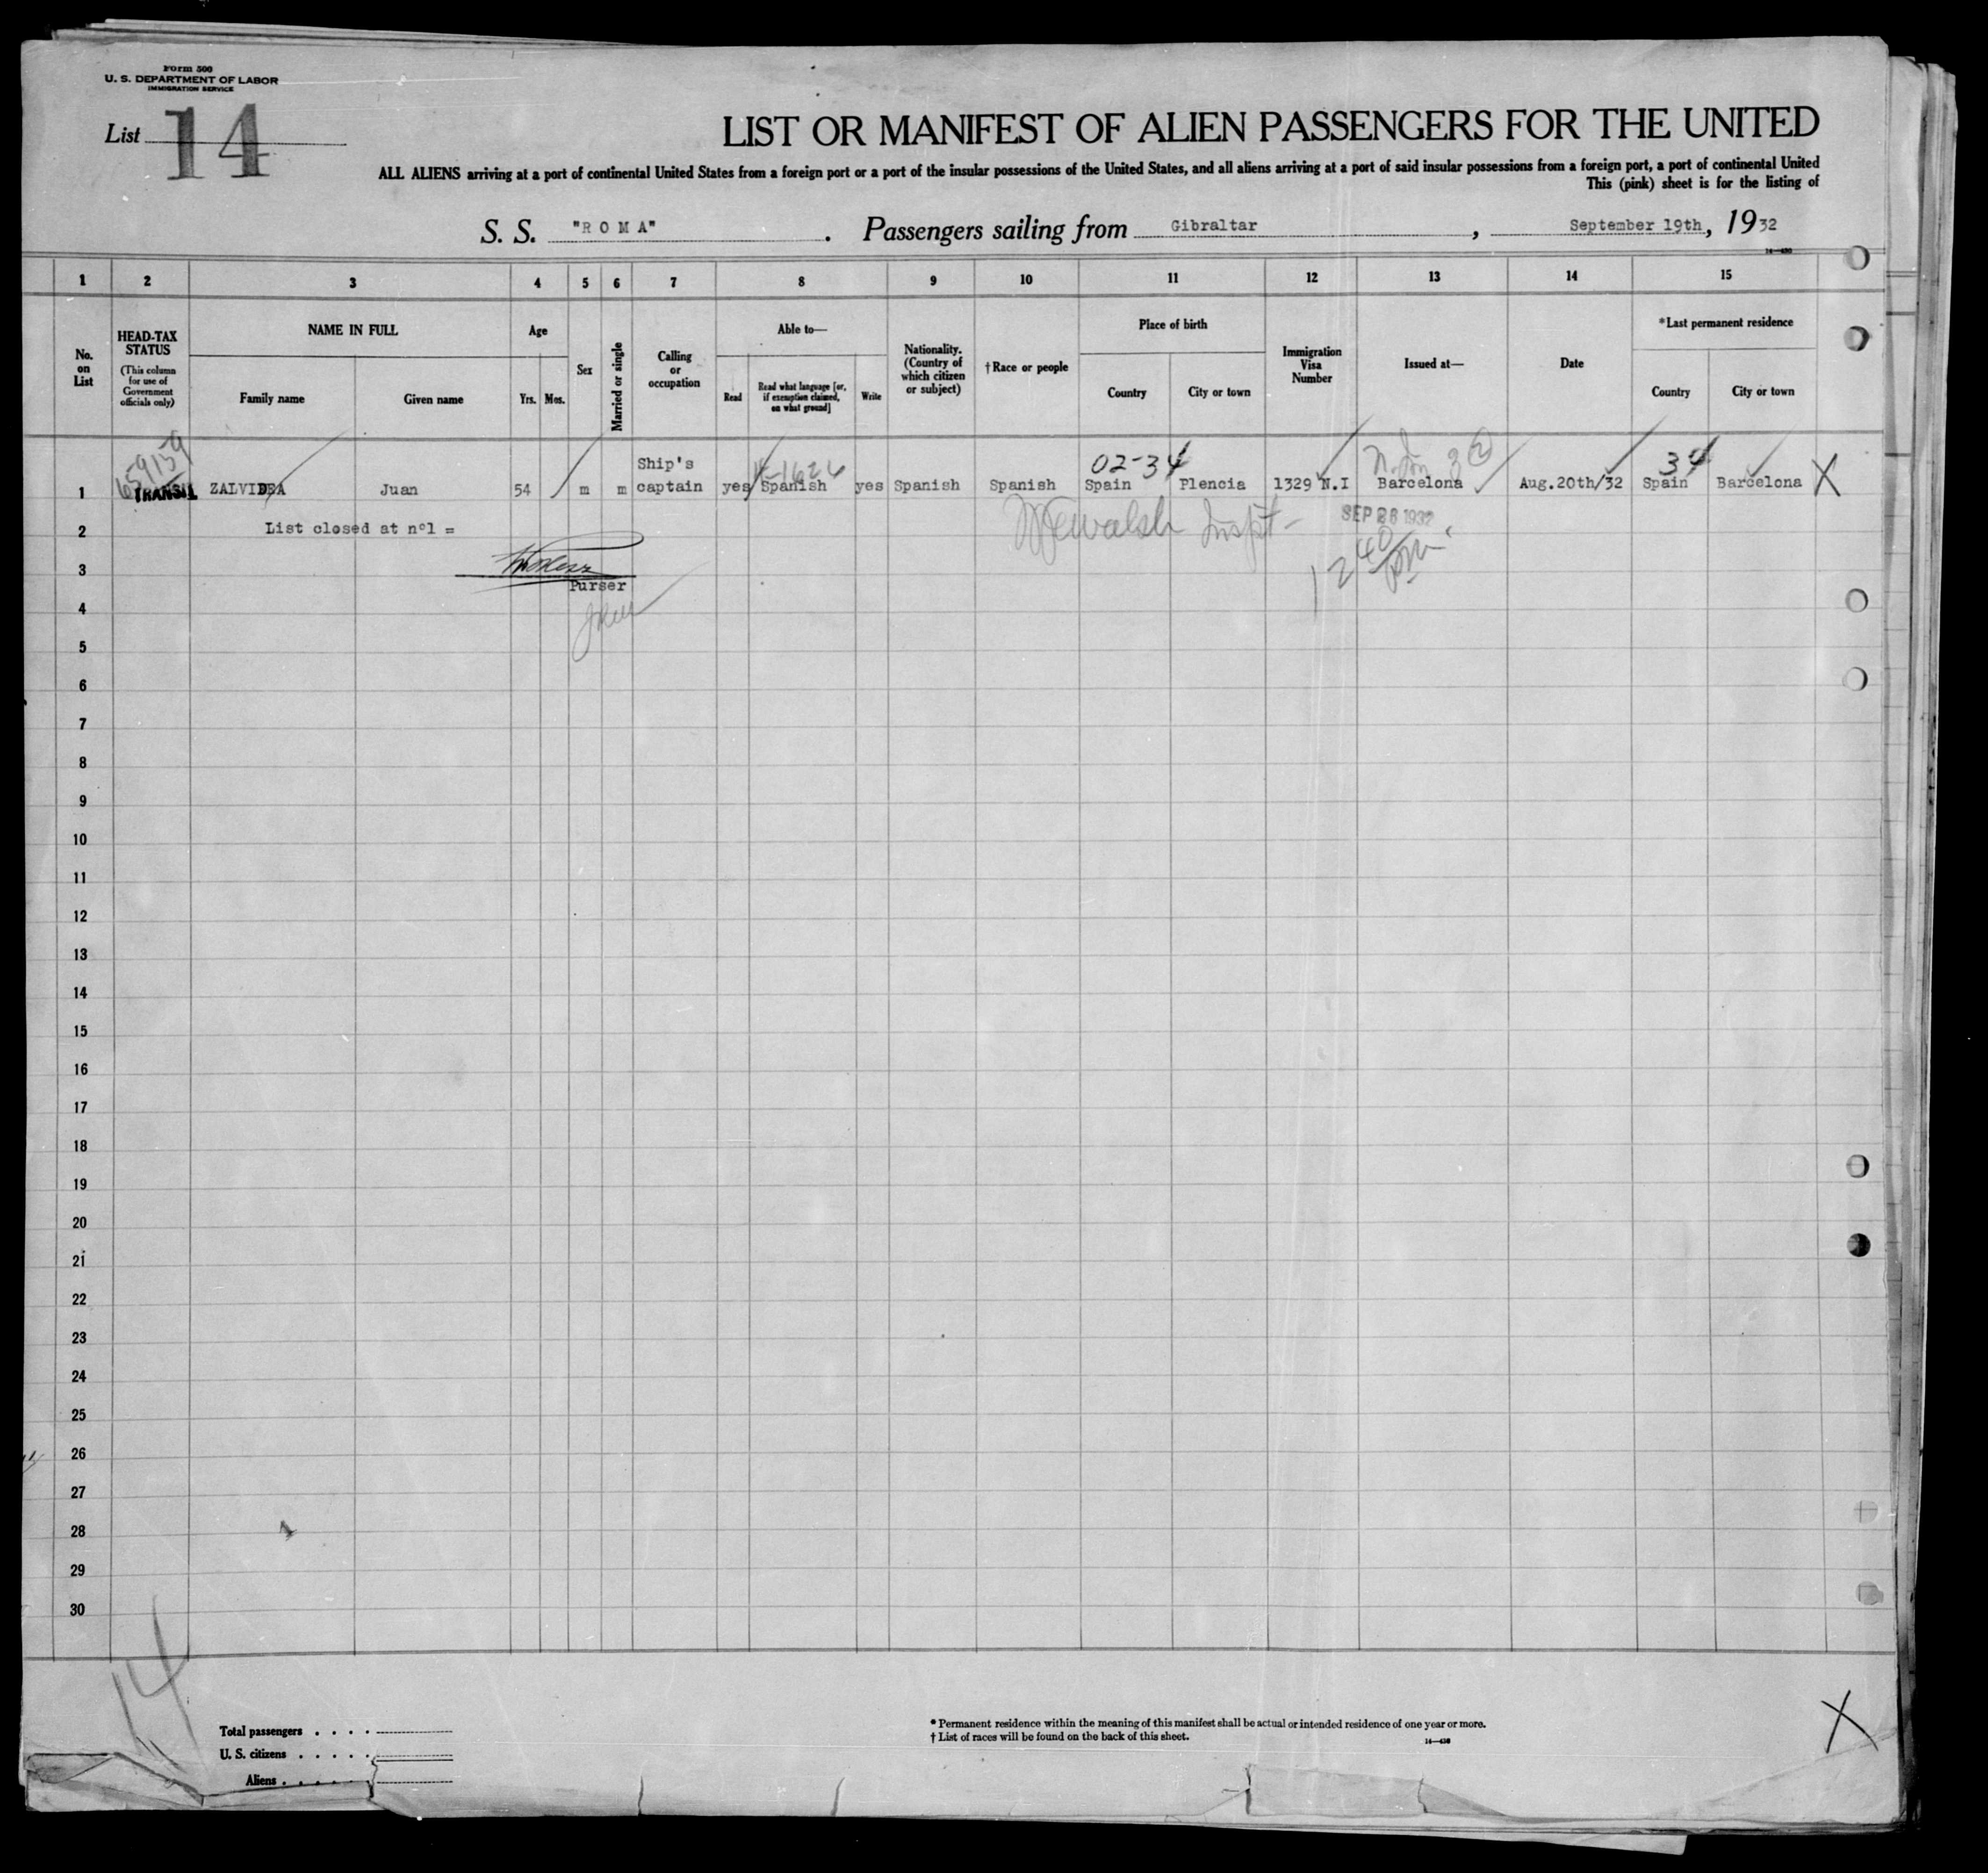 Form 500
U. S. DEPARTMENT OF LABOR
IMMIGRATION SERVICE
List 14
LIST OR MANIFEST OF ALIEN PASSENGERS FOR THE UNITED
ALL ALIENS arriving at a port of continental United States from a foreign port or a port of the insular possessions of the United States, and all aliens arriving at a port of said insular possessions from a foreign port, a port of continental United
This (pink) sheet is for the listing of
S. S. "ROMA". Passengers sailing from Gibraltar, September 19th, 1932
14—430
1 2 3 4 5 6 7 8 9 10 11 12 13 14 15
No. on List
HEAD-TAX STATUS
(This column for use of Government officials only)
NAME IN FULL
Family name Given name
Age
Yrs. Mos.
Sex
Married or single
Calling or occupation
Able to—
Read
Read what language [or, if exemption claimed, on what ground]
Write
Nationality. (Country of which citizen or subject)
†Race or people
Place of birth
Country City or town
Immigration Visa Number
Issued at—
Date
*Last permanent residence
Country City or town
659159 02-34 34
1 TRANSIT ZALVIDEA Juan 54 m m Ship's captain yes Spanish yes Spanish Spanish Spain Plencia 1329 N.I Barcelona Aug.20th/32 Spain Barcelona X
2 List closed at nº1 =
Walsh Inspt- SEP 26 1932
12 40 pm
3
Purser
4
5
6
7
8
9
10
11
12
13
14
15
16
17
18
19
20
21
22
23
24
25
26
27
28
29
30
14
X
Total passengers . . . .
U. S. citizens . . . . .
Aliens . . . . .
* Permanent residence within the meaning of this manifest shall be actual or intended residence of one year or more.
† List of races will be found on the back of this sheet.
14—430